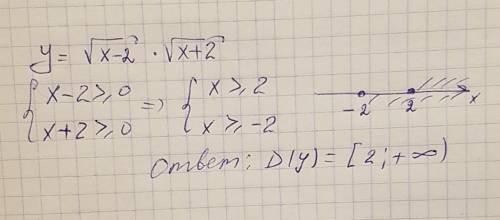 y = √(x-2) · √(x+2)
{ x-2 ⩾ 0 => { x ⩾ 2
{ x+2 ⩾ 0 { x ⩾ -2
-2 2 x
Ответ: D(y) = [2; +∞)